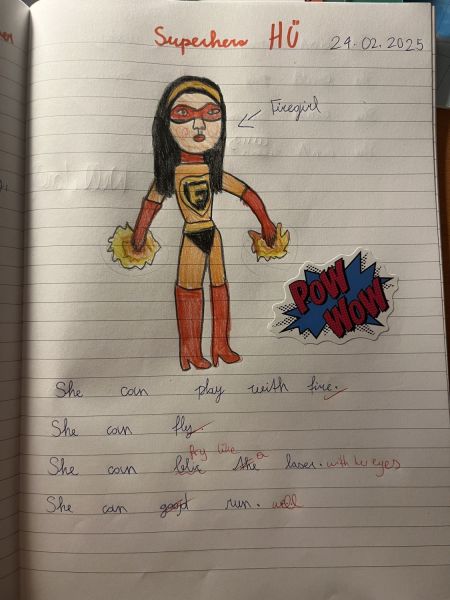 Superhero HÜ 24.02.2025
Firegirl
F
POW
WOW
She can play with fire.
She can fly
She can the fly like a laser. with her eyes
She can good run. well